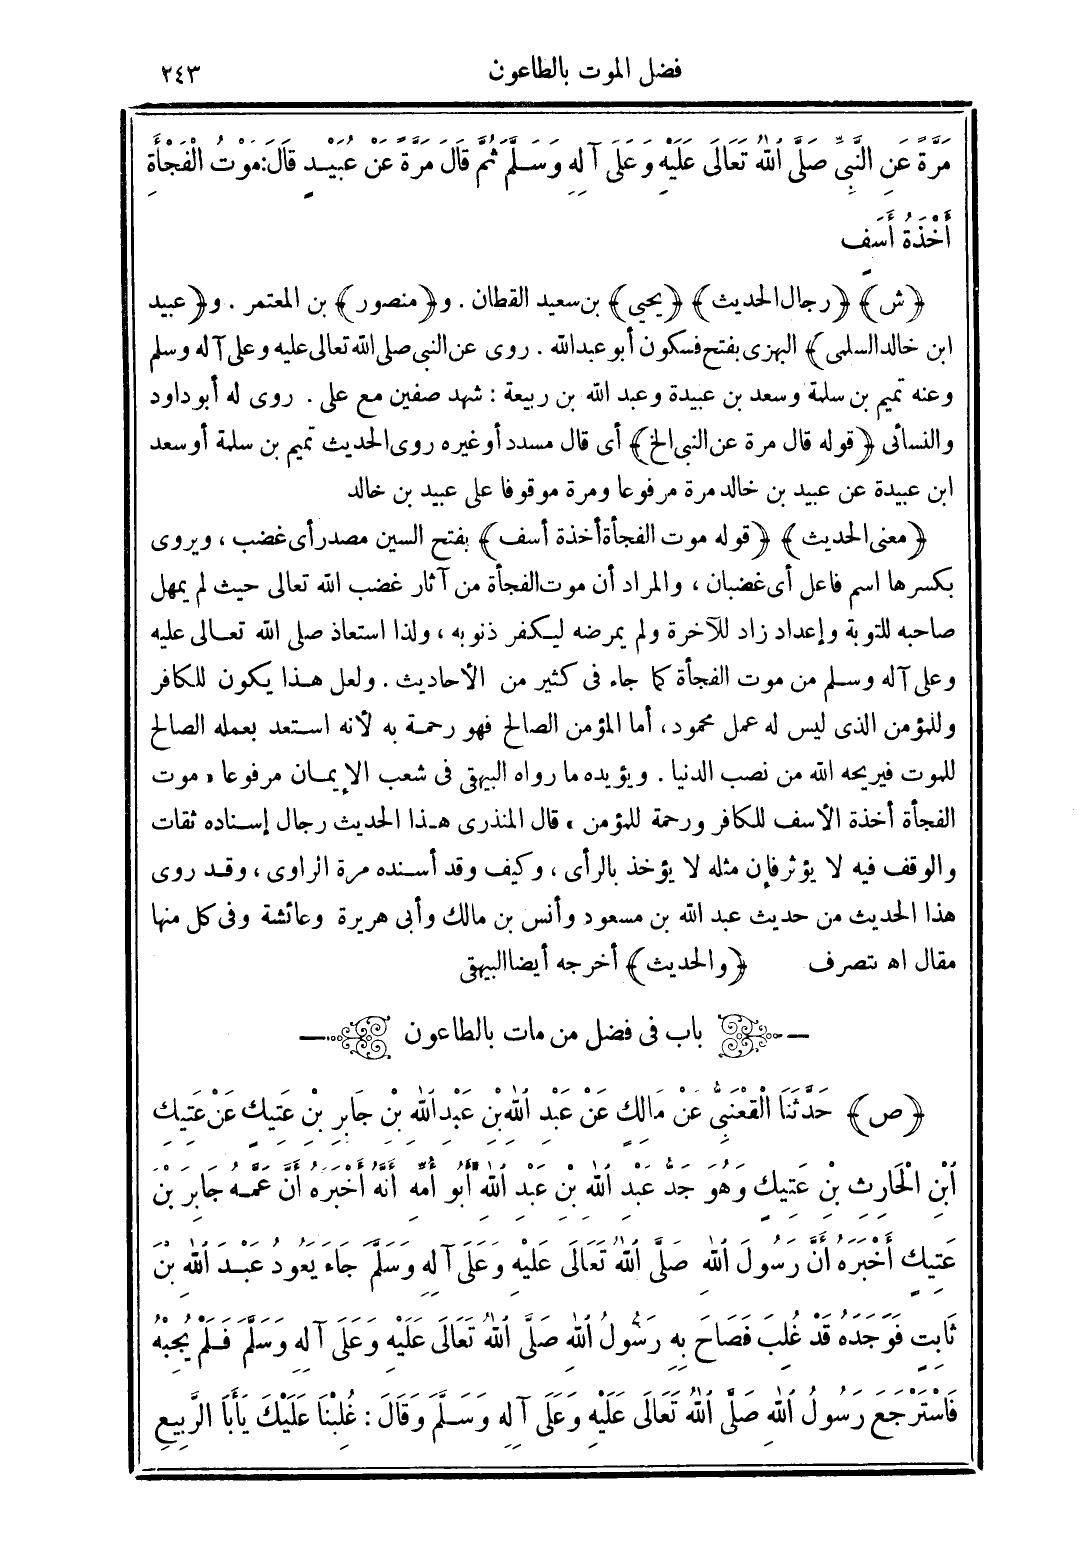 فضل الموت بالطاعون ٢٤٣
مَرَّةً عَنِ النَّبِىِّ صَلَّى اللهُ تَعَالَى عَلَيْهِ وَعَلَى آلِهِ وَسَلَّمَ ثُمَّ قَالَ مَرَّةً عَنْ عُبَيْدٍ قَالَ: مَوْتُ الْفَجْأَةِ
أَخْذَةُ أَسَفٍ
﴿ش﴾ ﴿رجال الحديث﴾ ﴿يحيى﴾ بن سعيد القطان . و﴿منصور﴾ بن المعتمر . و﴿عبيد
ابن خالد السلمى﴾ البهزى بفتح فسكون أبو عبد الله . روى عن النبى صلى الله تعالى عليه وعلى آله وسلم
وعنه تميم بن سلمة وسعد بن عبيدة وعبد الله بن ربيعة : شهد صفين مع على . روى له أبو داود
والنسائى ﴿قوله قال مرة عن النبى الخ﴾ أى قال مسدد أو غيره روى الحديث تميم بن سلمة أو سعد
ابن عبيدة عن عبيد بن خالد مرة مرفوعا ومرة موقوفا على عبيد بن خالد
﴿معنى الحديث﴾ ﴿قوله موت الفجأة أخذة أسف﴾ بفتح السين مصدر أى غضب ، ويروى
بكسرها اسم فاعل أى غضبان ، والمراد أن موت الفجأة من آثار غضب الله تعالى حيث لم يمهل
صاحبه للتوبة وإعداد زاد للآخرة ولم يمرضه ليكفر ذنوبه ، ولذا استعاذ صلى الله تعالى عليه
وعلى آله وسلم من موت الفجأة كما جاء فى كثير من الأحاديث . ولعل هذا يكون للكافر
وللمؤمن الذى ليس له عمل محمود ، أما المؤمن الصالح فهو رحمة به لأنه استعد بعمله الصالح
للموت فيريحه الله من نصب الدنيا . ويؤيده ما رواه البيهقى فى شعب الإيمان مرفوعا «موت
الفجأة أخذة الأسف للكافر ورحمة للمؤمن» قال المنذرى هذا الحديث رجال إسناده ثقات
والوقف فيه لا يؤثر فإن مثله لا يؤخذ بالرأى ، وكيف وقد أسنده مرة الراوى ، وقد روى
هذا الحديث من حديث عبد الله بن مسعود وأنس بن مالك وأبى هريرة وعائشة وفى كل منها
مقال اه بتصرف ﴿والحديث﴾ أخرجه أيضا البيهقى
باب فى فضل من مات بالطاعون
﴿ص﴾ حَدَّثَنَا الْقَعْنَبِىُّ عَنْ مَالِكٍ عَنْ عَبْدِ اللهِ بْنِ عَبْدِ اللهِ بْنِ جَابِرِ بْنِ عَتِيكٍ عَنْ عَتِيكِ
ابْنِ الْحَارِثِ بْنِ عَتِيكٍ وَهُوَ جَدُّ عَبْدِ اللهِ بْنِ عَبْدِ اللهِ أَبُو أُمِّهِ أَنَّهُ أَخْبَرَهُ أَنَّ عَمَّهُ جَابِرَ بْنَ
عَتِيكٍ أَخْبَرَهُ أَنَّ رَسُولَ اللهِ صَلَّى اللهُ تَعَالَى عَلَيْهِ وَعَلَى آلِهِ وَسَلَّمَ جَاءَ يَعُودُ عَبْدَ اللهِ بْنَ
ثَابِتٍ فَوَجَدَهُ قَدْ غُلِبَ فَصَاحَ بِهِ رَسُولُ اللهِ صَلَّى اللهُ تَعَالَى عَلَيْهِ وَعَلَى آلِهِ وَسَلَّمَ فَلَمْ يُجِبْهُ
فَاسْتَرْجَعَ رَسُولُ اللهِ صَلَّى اللهُ تَعَالَى عَلَيْهِ وَعَلَى آلِهِ وَسَلَّمَ وَقَالَ : غُلِبْنَا عَلَيْكَ يَاأَبَا الرَّبِيعِ